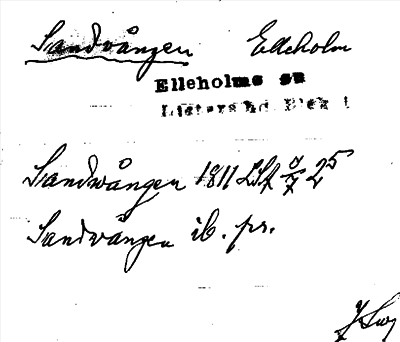 Sandvången Elleholm
Elleholms sn
Listers hd. Blek. l
Sandvången 1811 LSA 25
Sandvången ib. pr.